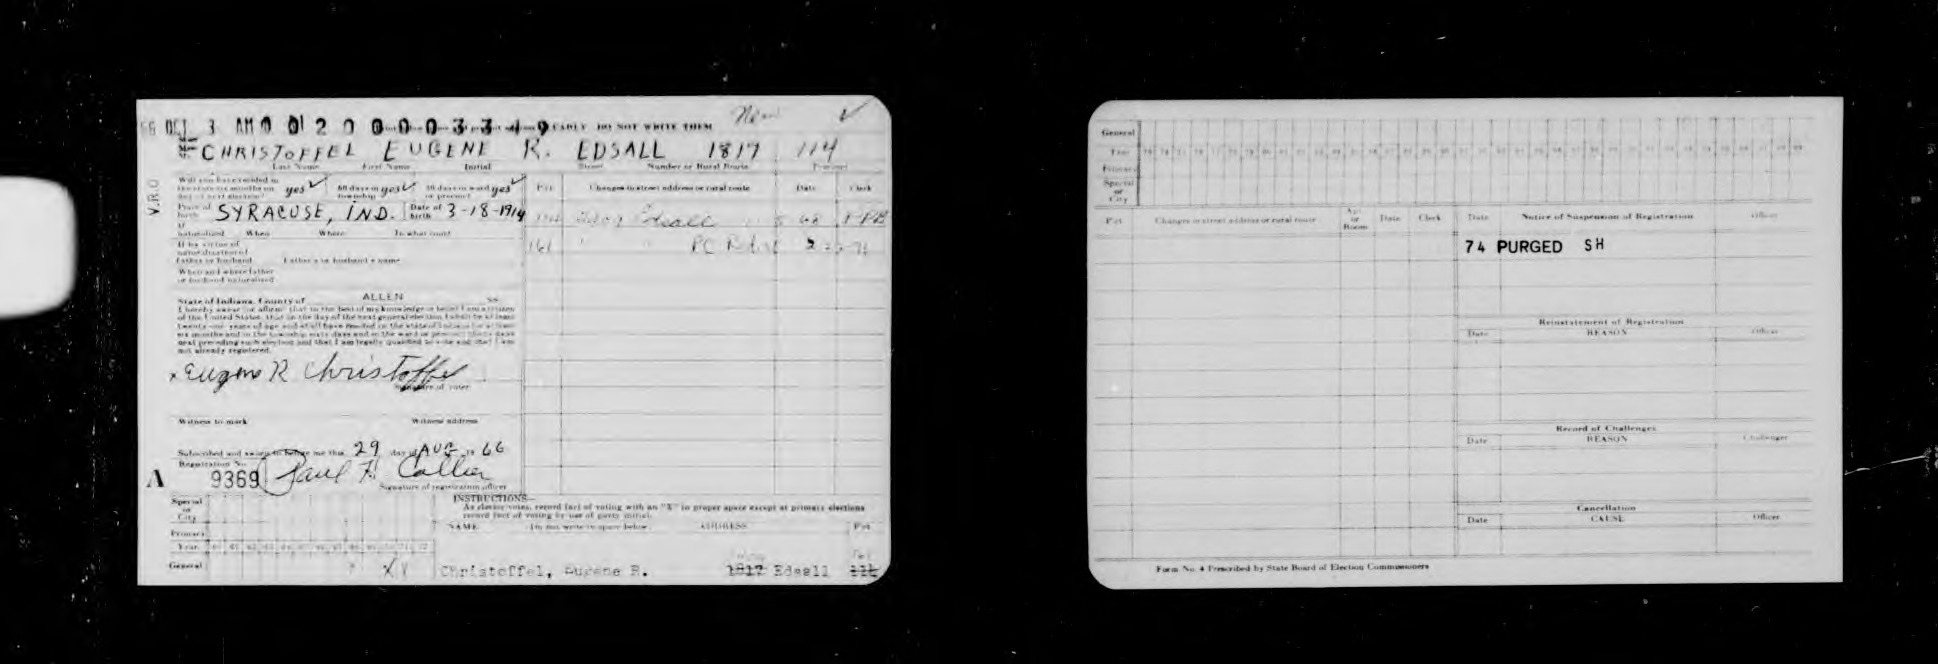 66 OCT 3 AM 0 012000003349 EARLY DO NOT WRITE THEM New ✓
CHRISTOFFEL EUGENE R. EDSALL 1817 114
Last Name First Name Initial Street Number or Rural Route Precinct
V.R.O
Will you have resided in
the state six months on yes ✓ 60 days in yes ✓ 30 days in ward yes ✓
day of next election? township or precinct
Pct Changes to street address or rural route Date Clerk
Place of birth SYRACUSE, IND. Date of birth 3-18-1914
Edsall 68
If naturalized When Where In what court
161 " " PC
If by virtue of
naturalization of
father or husband Father's or husband's name
When and where father
or husband naturalized
State of Indiana, County of ALLEN SS
I hereby swear (or affirm) that to the best of my knowledge and belief I am a citizen
of the United States, that on the day of the next general election I shall be at least
twenty-one years of age and shall have resided in the state of Indiana for at least
six months and in the township sixty days and in the ward or precinct thirty days
next preceding such election and that I am legally qualified to vote and that I am
not already registered.
x Eugene R Christoffel
Signature of voter
Witness to mark Witness address
Subscribed and sworn to before me this 29 day of AUG 19 66
Registration No.
A 9369 Paul F. Collier
Signature of registration officer
INSTRUCTIONS—
As elector votes, record fact of voting with an "X" in proper space except at primary elections
record fact of voting by use of party initial.
Special or City
NAME Do not write in space below. ADDRESS Pct
Primary
Year
General X X
Christoffel, Eugene R. 1817 Edsall 114
General
Year
Primary
Special or City
Pct Changes or street address or rural route Apt or Room Date Clerk Date Notice of Suspension of Registration Officer
74 PURGED SH
Reinstatement of Registration
Date REASON Officer
Record of Challenges
Date REASON Challenger
Cancellation
Date CAUSE Officer
Form No. 4 Prescribed by State Board of Election Commissioners